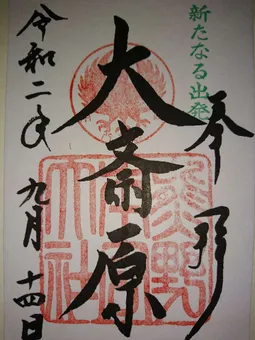 新たなる出発
奉拝
大斎原
熊野本宮大社
令和二年
九月十四日